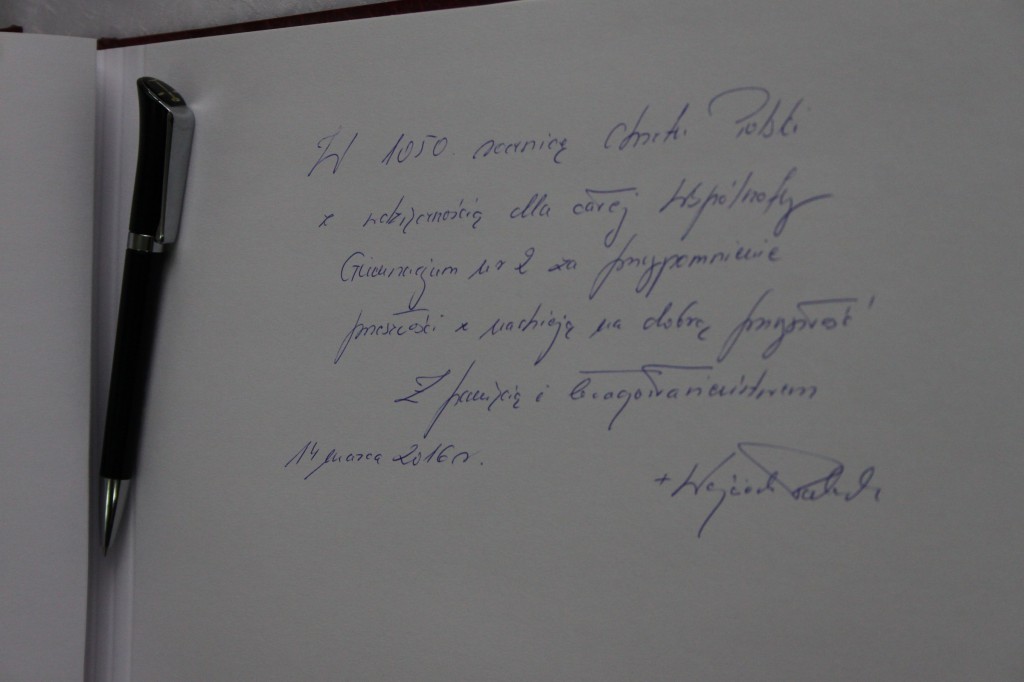 W 1050. rocznicę Chrztu Polski
z wdzięcznością dla całej Wspólnoty
Gimnazjum nr 2 za przypomnienie
przeszłości z nadzieją na dobrą przyszłość
Z pamięcią i błogosławieństwem
14 marca 2016 r.
+ Wojciech